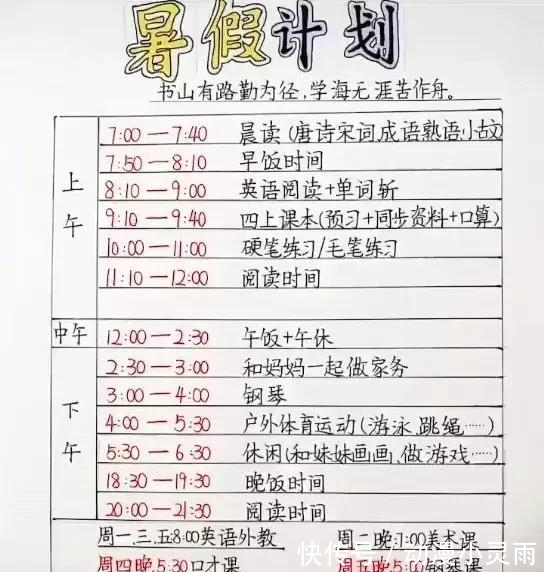 暑假计划
书山有路勤为径,学海无涯苦作舟。
上午
7:00—7:40 晨读(唐诗宋词成语熟语小古文)
7:50—8:10 早饭时间
8:10—9:00 英语阅读+单词斩
9:10—9:40 四上课本(预习+同步资料+口算)
10:00—11:00 硬笔练习/毛笔练习
11:10—12:00 阅读时间
中午 12:00—2:30 午饭+午休
下午
2:30—3:00 和妈妈一起做家务
3:00—4:00 钢琴
4:00—5:30 户外体育运动(游泳、跳绳……)
5:30—6:30 休闲(和妹妹画画、做游戏……)
18:30—19:30 晚饭时间
20:00—21:30 阅读时间
周一、三、五8:00英语外教 周二晚7:00美术课
周四晚5:30口才课 周五晚5:00钢琴课
快传号/动漫小灵雨